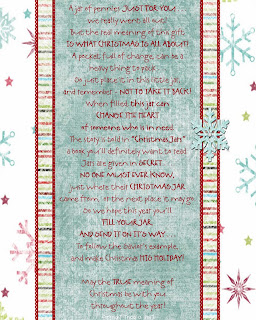 A jar of pennies JUST FOR YOU!
we really went all out!
but the real meaning of this gift,
IS WHAT CHRISTMAS IS ALL ABOUT!
A pocket full of change, can be a
heavy thing to pack.
So just place it in this little jar,
and remember - NOT TO TAKE IT BACK!
When filled, this jar can
CHANGE THE HEART
of someone who is in need.
The story is told in "Christmas Jars"
a book you'll definitely want to read.
Jars are given in SECRET.
NO ONE MUST EVER KNOW,
just where their CHRISTMAS JAR
came from, or the next place it may go.
So we hope this year you'll
FILL YOUR JAR,
AND SEND IT ON IT'S WAY.
To follow the Savior's example,
and make Christmas HIS HOLIDAY!
May the TRUE meaning of
Christmas be with you
throughout the year!